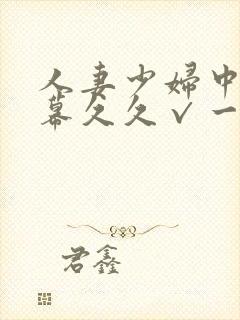 人妻少婦中
幕久久v一
君鑫